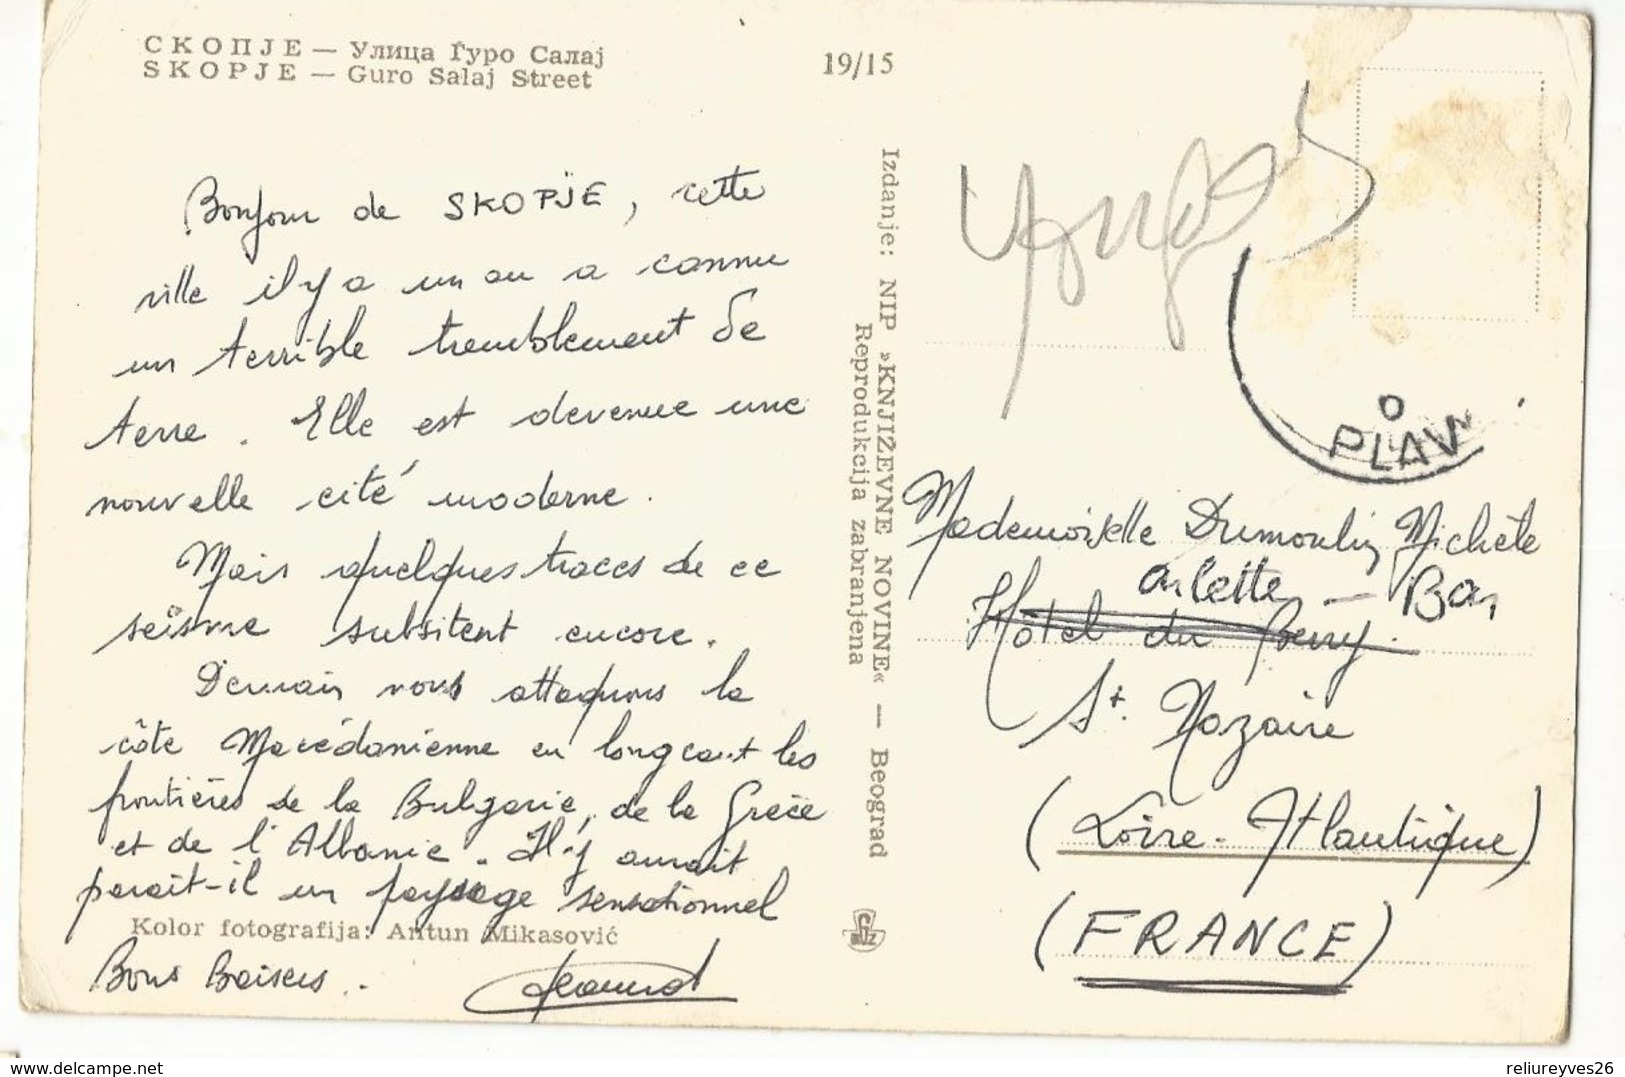 СКОПЈЕ — Улица Ѓуро Салај
SKOPJE — Guro Salaj Street
19/15
Bonjour de SKOPJE, cette
ville il y a un an a connu
un terrible tremblement de
terre. Elle est devenue une
nouvelle cité moderne.
Mais quelques traces de ce
seïsme subsitent encore.
Demain nous attaquons la
côte Macédonienne en longeant les
frontières de la Bulgarie, de la Grèce
et de l'Albanie. Il y aurait
parait-il un paysage sensationnel
Kolor fotografija: Antun Mikasović
Bons Baisers..
Izdanje: NIP »KNJIŽEVNE NOVINE« — Beograd
Reprodukcija zabranjena
PLAV
Mademoiselle Dumoulin Michèle
Arlette — Bar
Hôtel du Berry
St. Nazaire
(Loire-Atlantique)
(FRANCE)
delcampe.net
reliureyves26